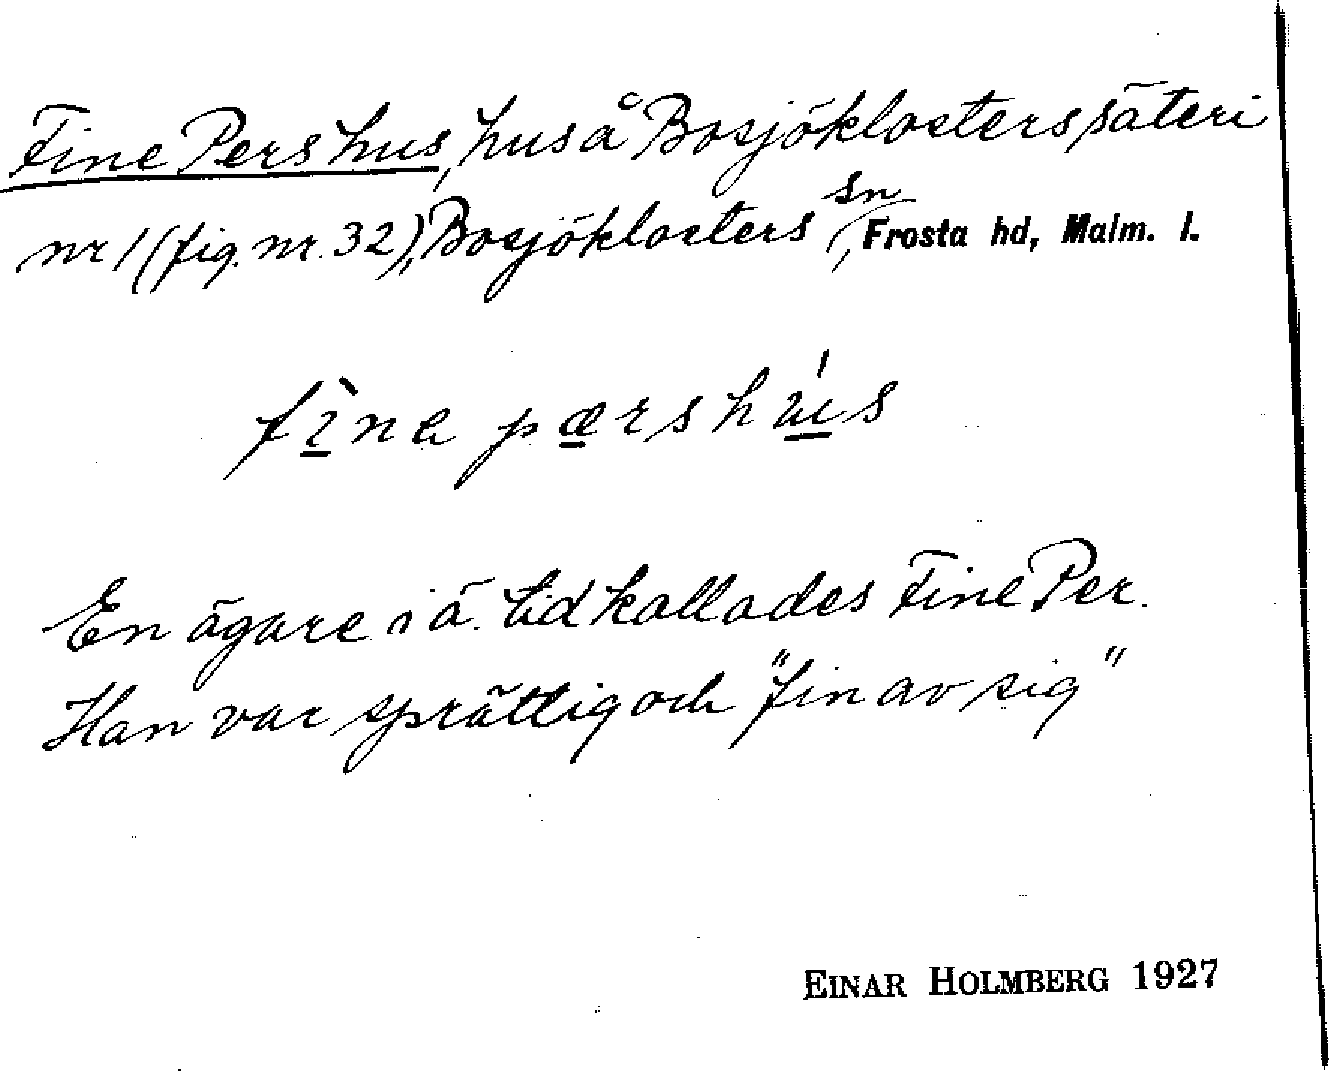 Fine Pers hus, hus å Bosjöklosters säteri
nr 1 (fig. nr. 32), Bosjöklosters sn, Frosta hd, Malm. l.
fìne pærs hu̍s
En ägare i ä. tid kallades Fine Per.
Han var sprättig och "fin av sig"
EINAR HOLMBERG 1927